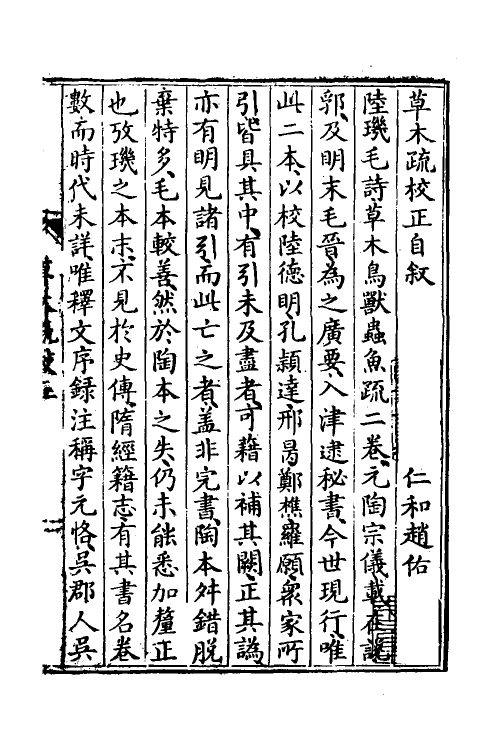 草木疏校正自叙
仁和趙佑
陸璣毛詩草木鳥獸蟲魚疏二卷元陶宗儀載在說
郛及明末毛晉為之廣要入津逮秘書今世現行唯
此二本以校陸德明孔頴達邢昺鄭樵羅願衆家所
引皆具其中有引未及盡者可藉以補其闕正其譌
亦有明見諸引而此亡之者盖非完書陶本舛錯脱
棄特多毛本較善然於陶本之失仍未能悉加釐正
也攷璣之本末不見於史傳隋經籍志有其書名卷
數而時代未詳唯釋文序録注稱字元恪吳郡人吳
草木疏校正